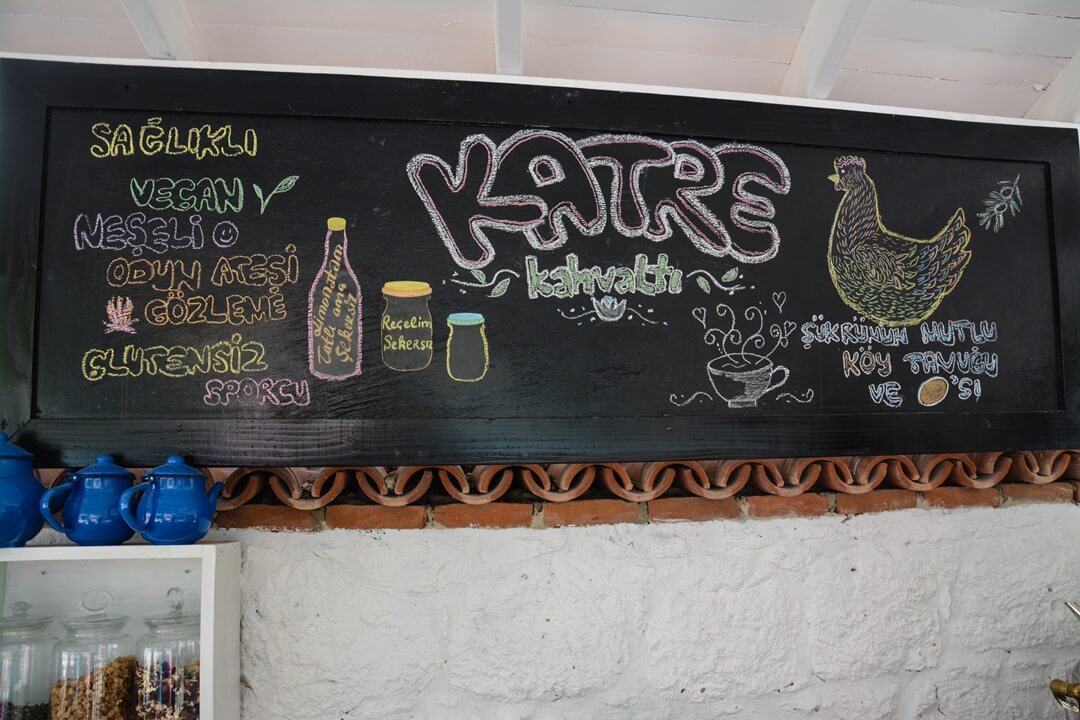 SAĞLIKLI
VEGAN
NEŞELİ
ODUN ATEŞİ
GÖZLEME
GLUTENSİZ
SPORCU
Limonatam
Tatlı ama
Şekersiz
Reçelim
Şekersiz
KATRE
kahvaltı
ŞÜKRÜNÜN MUTLU
KÖY TAVUĞU
VE 'SI